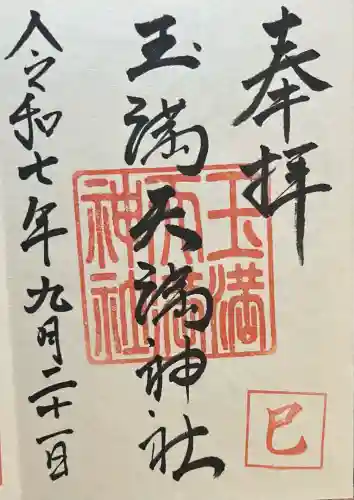 奉拝
玉満天満神社
令和七年九月二十一日
玉満
天満
神社
巳